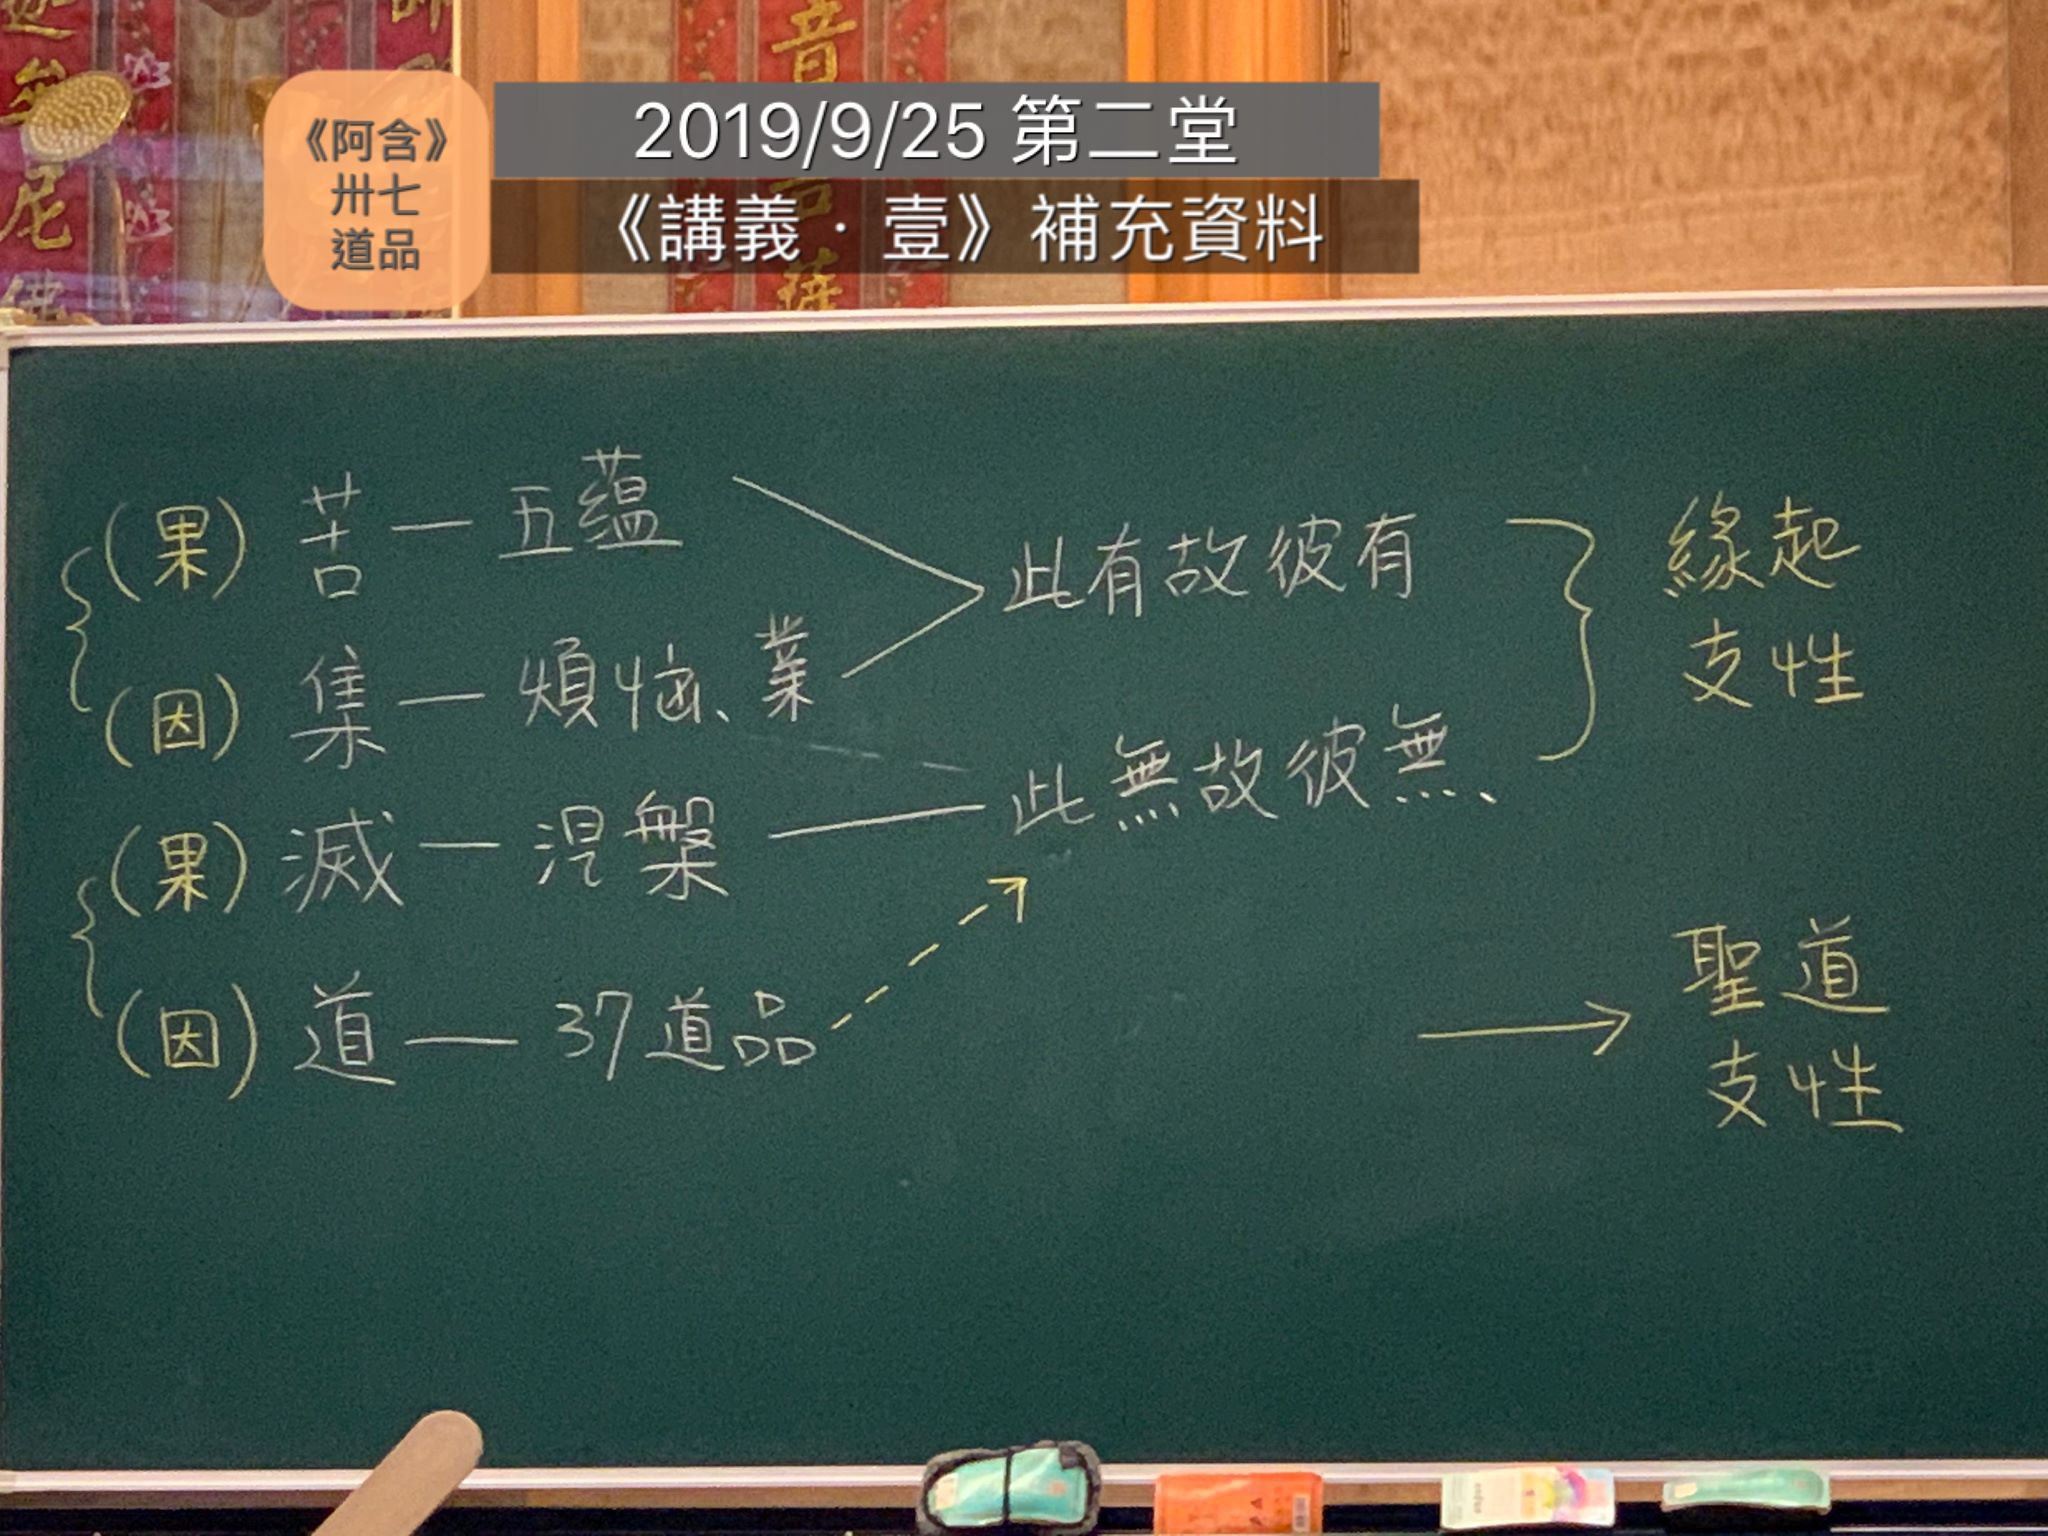 音
尼
《阿含》
卅七
道品
2019/9/25 第二堂
《講義．壹》補充資料
(果) 苦 — 五蘊
(因) 集 — 煩惱、業
(果) 滅 — 涅槃
(因) 道 — 37道品
此有故彼有
此無故彼無、
緣起
支性
聖道
支性